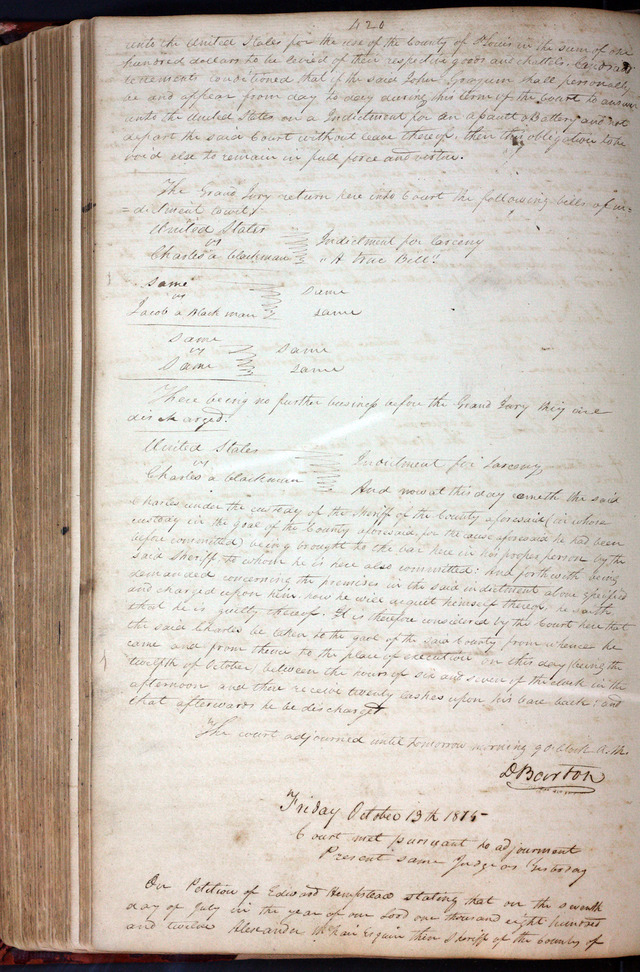 420
unto the United States for the use of the County of St Louis in the sum of one
hundred dollars to be levied of their respective goods and chattels, lands and
tenements conditioned that if the said John shall personally
be and appear from day to day during this term of the Court to answer
unto the United States on a Indictment for an assault & Battery and not
depart the said Court without leave thereof, then this obligation to be
void else to remain in full force and virtue.
The Grand Jury return here into Court the following bills of in-
=dictment towit;
United States
vs
Charles a blackman
Indictment for larceny
"A true Bill"
Same
vs
Jacob a Black man
Same
same
Same
vs
Same
Same
same
There being no further business before the Grand Jury they are
discharged.
United States
vs
Charles a blackman
Indictment for Larceny
And now at this day cometh the said
Charles under the custody of the Sheriff of the County aforesaid (in whose
custody in the goal of the County aforesaid, for the cause aforesaid he had been
before committed) being brought to the bar here in his proper person by the
said Sheriff to whom he is here also committed: And forthwith being
demanded concerning the premises in the said indictment above specified
and charged upon him, how he will acquit himself thereof, he saith
that he is guilty thereof. It is therefore considered by the Court here that
the said Charles be taken to the gaol of the said County from whence he
came and from thence to the place of execution on this day (being the
twelfth of October) between the hours of six and seven of the clock in the
afternoon and there receive twenty lashes upon his bare back: and
that afterwards he be discharged
The court adjourned until tomorrow morning 9 o clock A. M.
D Barton
Friday October 13th 1815
Court met pursuant to adjourment
Present same Judge as Yesterday
On Petition of Edward Hempstead stating that on the seventh
day of July in the year of our Lord one thousand eight hundred
and twelve Alexander McNair Esquire then Sheriff of the County of